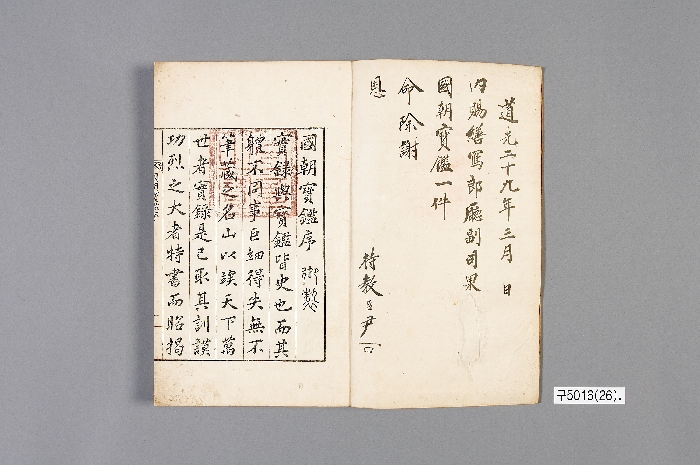 道光二十九年三月 日
內賜繕寫郎廳副司果
國朝寶鑑一件
命除謝
恩
待教臣尹
國朝寶鑑序 御製
實錄與寶鑑皆史也而其
體不同事巨細得失無不
筆藏之名山以俟天下萬
世者實錄是已取其訓謨
功烈之大者特書而昭揭
구5016(26).